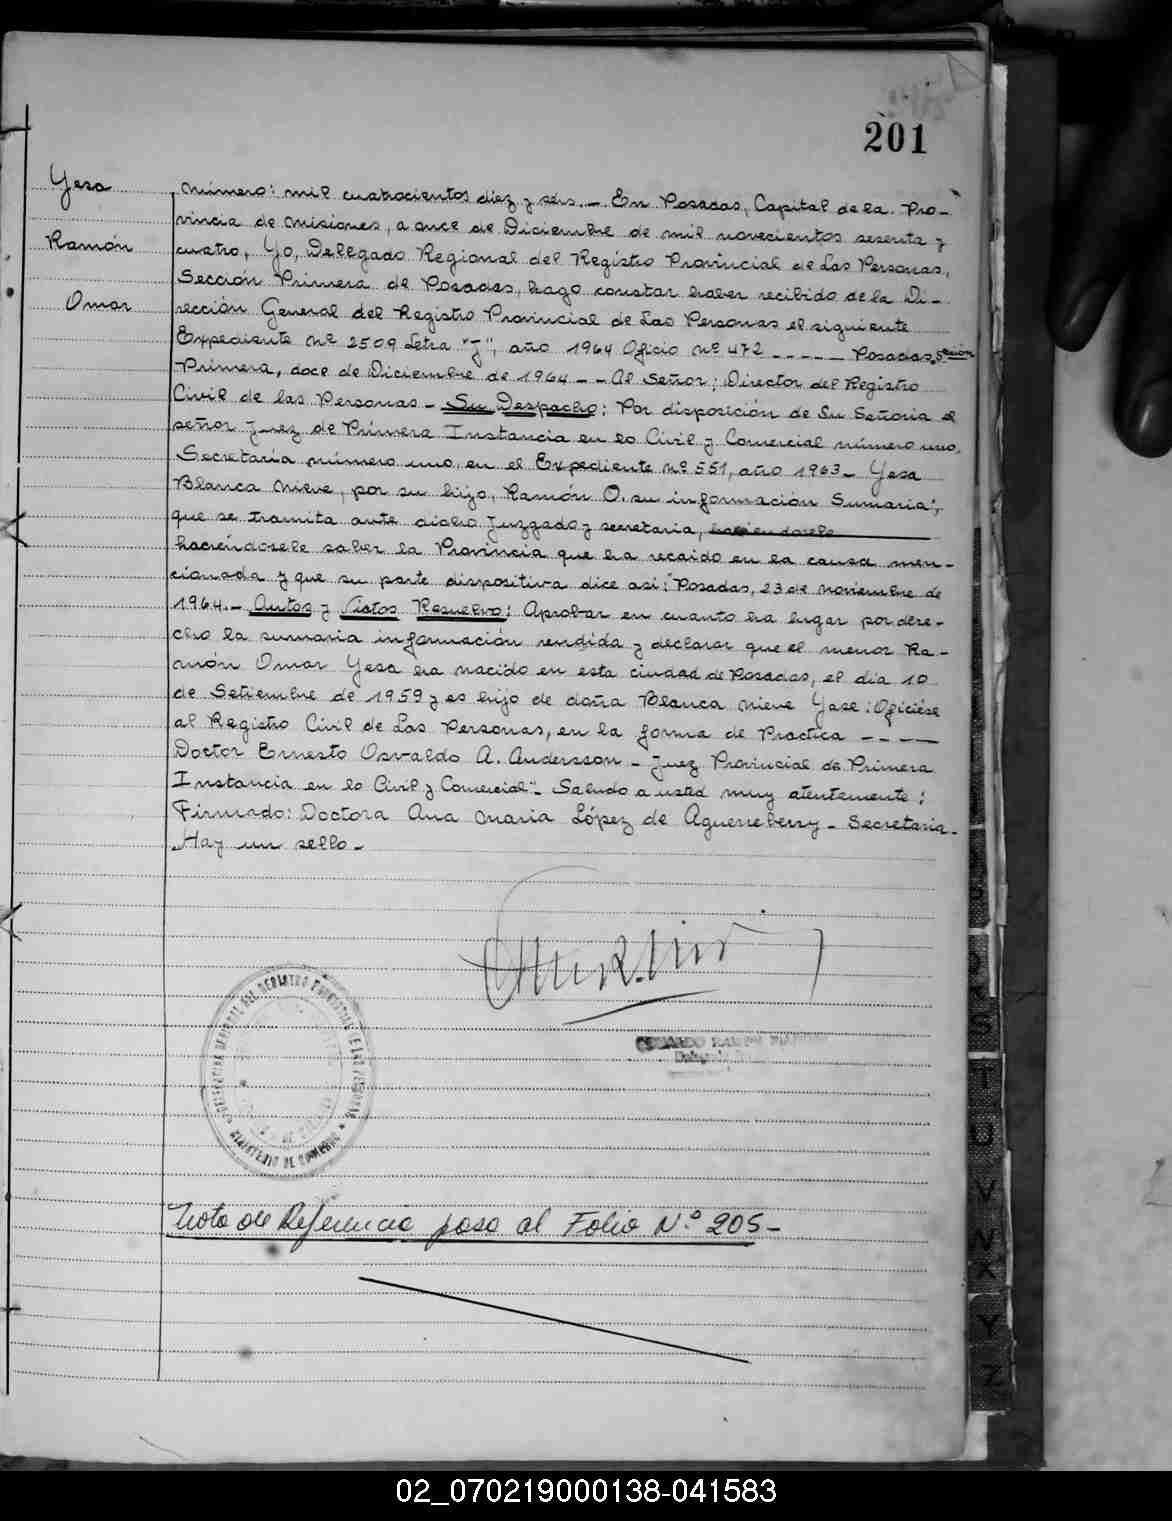 201
Yesa
Ramón
Omar
Número: mil cuatrocientos diez y seis.- En Posadas, Capital de la Pro-
vincia de Misiones, a once de Diciembre de mil novecientos sesenta y
cuatro, Yo, Delegado Regional del Registro Provincial de Las Personas,
Sección Primera de Posadas, hago constar haber recibido de la Di-
rección General del Registro Provincial de Las Personas el siguiente
Expediente Nº 2509 Letra "J", año 1964 Oficio Nº 472 ----- Posadas, Sección
Primera, doce de Diciembre de 1964 -- Al Señor: Director del Registro
Civil de las Personas - Su Despacho: Por disposición de Su Señoria el
señor Juez de Primera Instancia en lo Civil y Comercial número uno,
Secretaría número uno, en el Expediente Nº 551, año 1963- Yesa
Blanca Nieve, por su hijo, Ramón O. su información Sumaria",
que se tramita ante dicho Juzgado y secretaria, haciendosele
haciéndosele saber la Provincia que ha recaido en la causa men-
cionada y que su parte dispositiva dice asi: "Posadas, 23 de noviembre de
1964.- Autos y Vistos Resuelvo: Aprobar en cuanto ha lugar por dere-
cho la sumaria información rendida y declarar que el menor Ra-
món Omar Yesa ha nacido en esta ciudad de Posadas, el día 10
de Setiembre de 1959 y es hijo de doña Blanca Nieve Yase: Oficiése
al Registro Civil de Las Personas, en la forma de Practica ----
Doctor Ernesto Osvaldo A. Andersson - Juez Provincial de Primera
Instancia en lo Civil y Comercial"- Saludo a usted muy atentamente:
Firmado: Doctora Ana Maria López de Aguerreberry - Secretaria-
Hay un sello-
MINISTERIO DE GOBIERNO
Nota de Referencia pasa al Folio N.º 205-
S
T
U
V
W
X
Y
Z
02_070219000138-041583